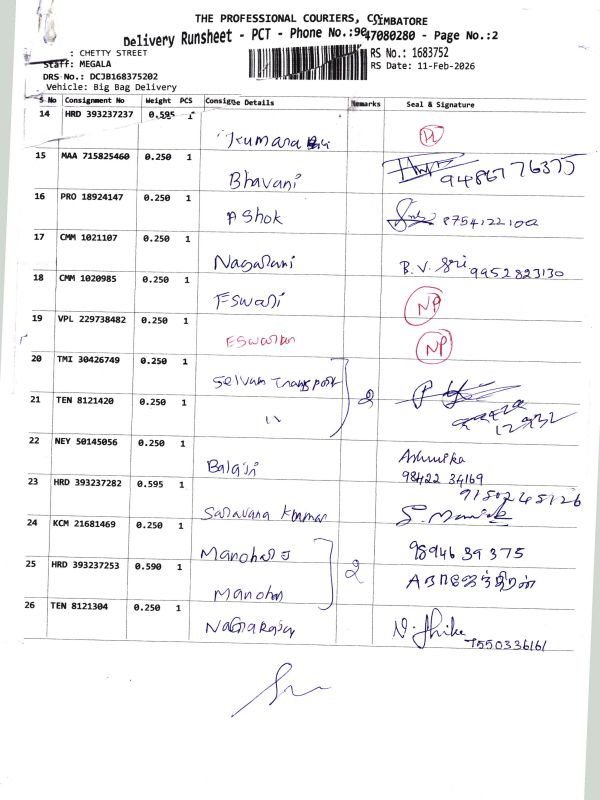 THE PROFESSIONAL COURIERS, COIMBATORE
Delivery Runsheet - PCT - Phone No.:9047080280 - Page No.:2
: CHETTY STREET
Staff: MEGALA
DRS No.: DCJB168375202
Vehicle: Big Bag Delivery
RS No.: 1683752
RS Date: 11-Feb-2026
S No Consignment No Weight PCS Consignee Details Remarks Seal & Signature
14 HRD 393237237 0.595 1
Kumara H
15 MAA 715825460 0.250 1
Bhavani 94867 76375
16 PRO 18924147 0.250 1
Ashok 8754122100
17 CMM 1021107 0.250 1
Nagarani B.V. Sri 9952823130
18 CMM 1020985 0.250 1
Eswari NP
19 VPL 229738482 0.250 1
Eswaran NP
20 TMI 30426749 0.250 1
Selvam Transport
21 TEN 8121420 0.250 1
" 2
22 NEY 50145056 0.250 1
Balaji 98422 34169
23 HRD 393237282 0.595 1
9150245126
Saravana Kumar
24 KCM 21681469 0.250 1
Manoharj 9894639375
25 HRD 393237253 0.590 1
Manohar 2
26 TEN 8121304 0.250 1
Nagaraj 7550336161